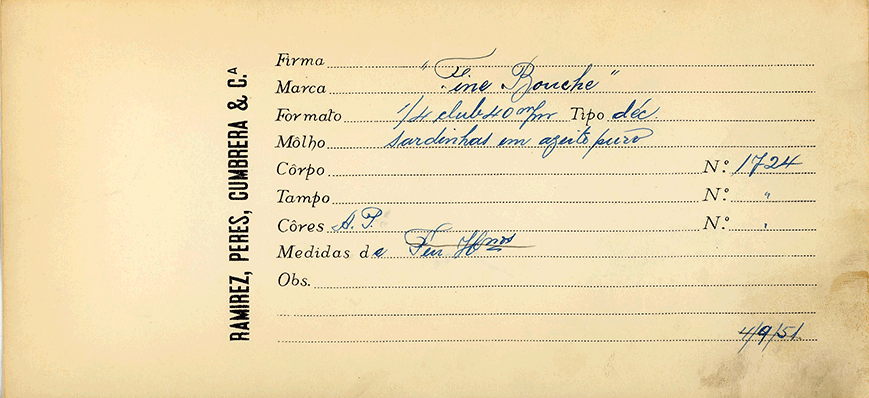 RAMIREZ, PERES, CUMBRERA & C.A
Firma
Marca "Fine Bouche"
Formato 1/4 club 40 m/m Tipo déc.
Môlho sardinhas em azeite puro
Côrpo N.º 1724
Tampo N.º "
Côres A. P. N.º "
Medidas de Feu Hnos
Obs.
4/9/51